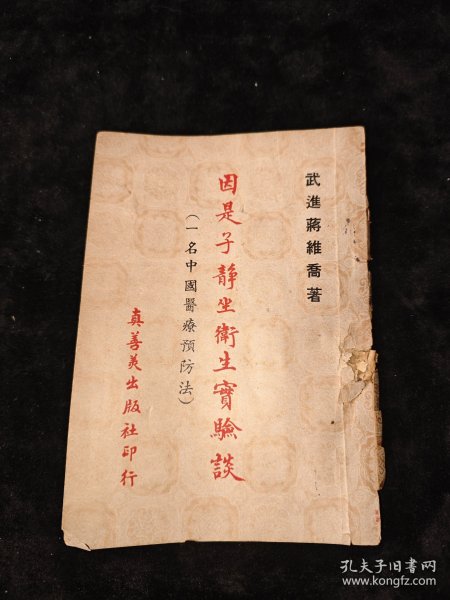 武進蔣維喬著
因是子靜坐衛生實驗談
(一名中國醫療預防法)
真善美出版社印行
孔夫子旧书网
www.kongfz.com